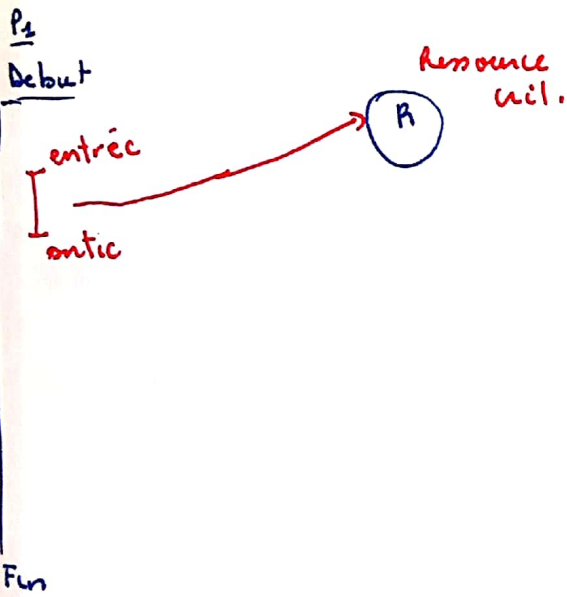 P1
Debut
Ressource
R
entrée
sortie
Fin